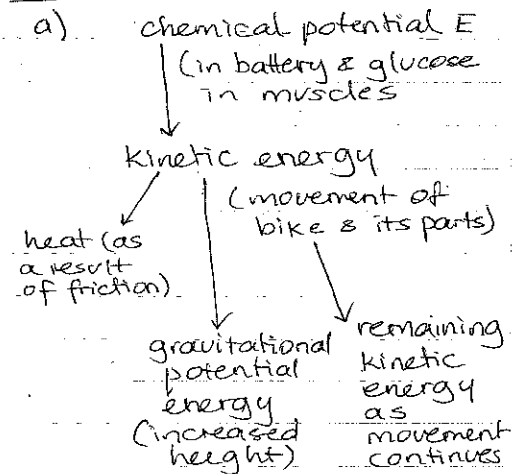 a) chemical potential E
(in battery & glucose
in muscles
kinetic energy
(movement of
bike & its parts)
heat (as
a result
of friction)
gravitational
potential
energy
(increased
height)
remaining
kinetic
energy
as
movement
continues